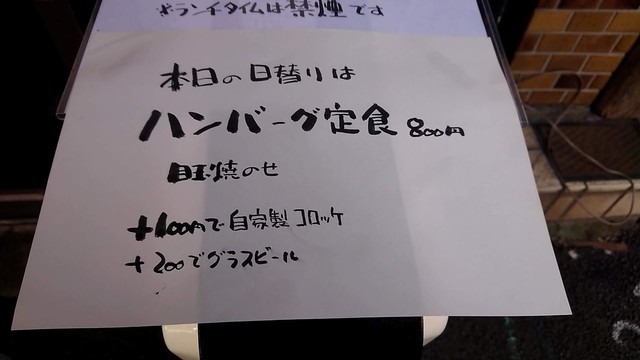 ※ランチタイムは禁煙です
本日の日替りは
ハンバーグ定食 800円
目玉焼のせ
+100円で自家製コロッケ
+200でグラスビール